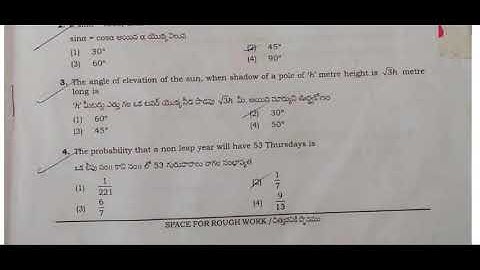 sinα = cosα అయిన α యొక్క విలువ
(1) 30° (2) 45°
(3) 60° (4) 90°
3. The angle of elevation of the sun, when shadow of a pole of 'h' metre height is √3h metre
long is
'h' మీటర్లు ఎత్తు గల ఒక టవర్ యొక్క నీడ పొడవు √3h మీ. అయిన సూర్యుని ఊర్ధ్వకోణం
(1) 60° (2) 30°
(3) 45° (4) 50°
4. The probability that a non leap year will have 53 Thursdays is
ఒక లీపు సం॥ కాని సం॥ లో 53 గురువారాలు రాగల సంభావ్యత
(1) 1/221 (2) 1/7
(3) 6/7 (4) 9/13
SPACE FOR ROUGH WORK / చిత్తుపనికి స్థానము